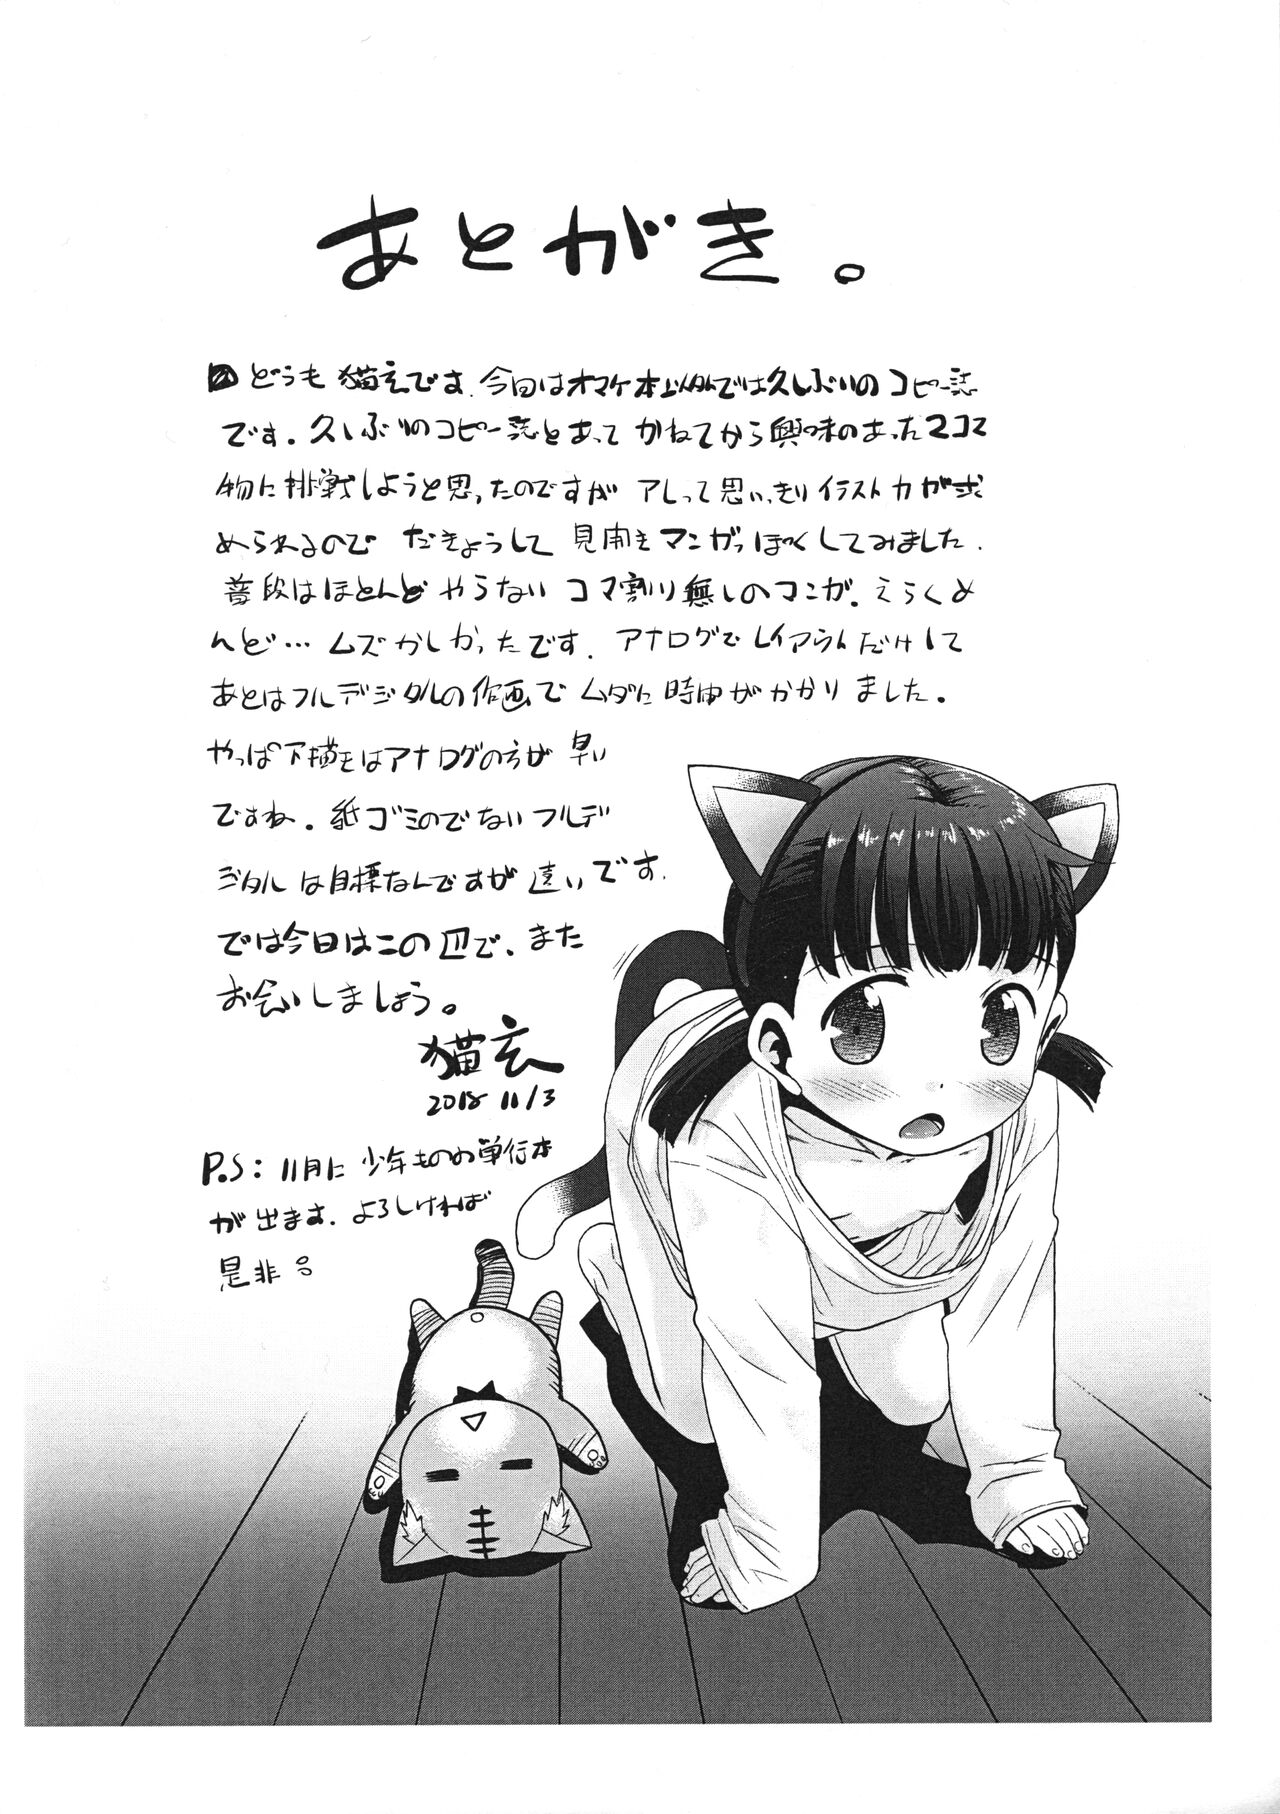 あとがき。
どうも猫玄です。今回はオマケ本以外では久しぶりのコピー誌
です。久しぶりのコピー誌とあって かねてから興味のあった2コマ
物に挑戦しようと思ったのですが アレって思いっきりイラスト力が求
められるので だきょうして 見開きマンガっぽくしてみました。
普段はほとんど やらない コマ割り無しのマンガ。えらくめ
んど…ムズかしかったです。アナログでレイアウトだけして
あとはフルデジタルの作画で ムダに時間がかかりました。
やっぱ下描きはアナログの方が早い
ですね。紙ゴミのでないフルデ
ジタルは目標なんですが遠いです。
では今日はこの辺で、また
お会いしましょう。
猫玄
2018 11/3
P.S: 11月に 少年ものの単行本
が出ます。よろしければ
是非